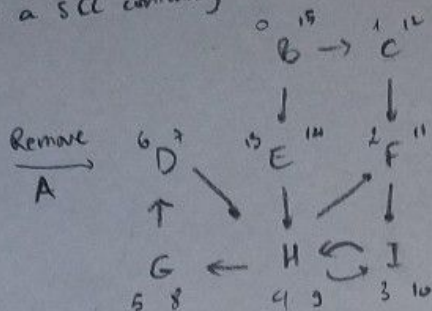 a SCC
0 B 15 → 1 C 12
Remove
A
6 D 7 13 E 14 2 F 11
G ← H I
5 8 4 9 3 10